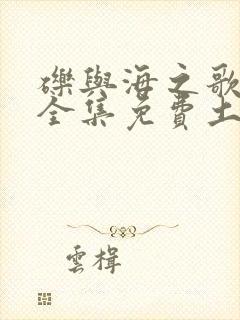 礫與海之歌
全集免費土
雲楫